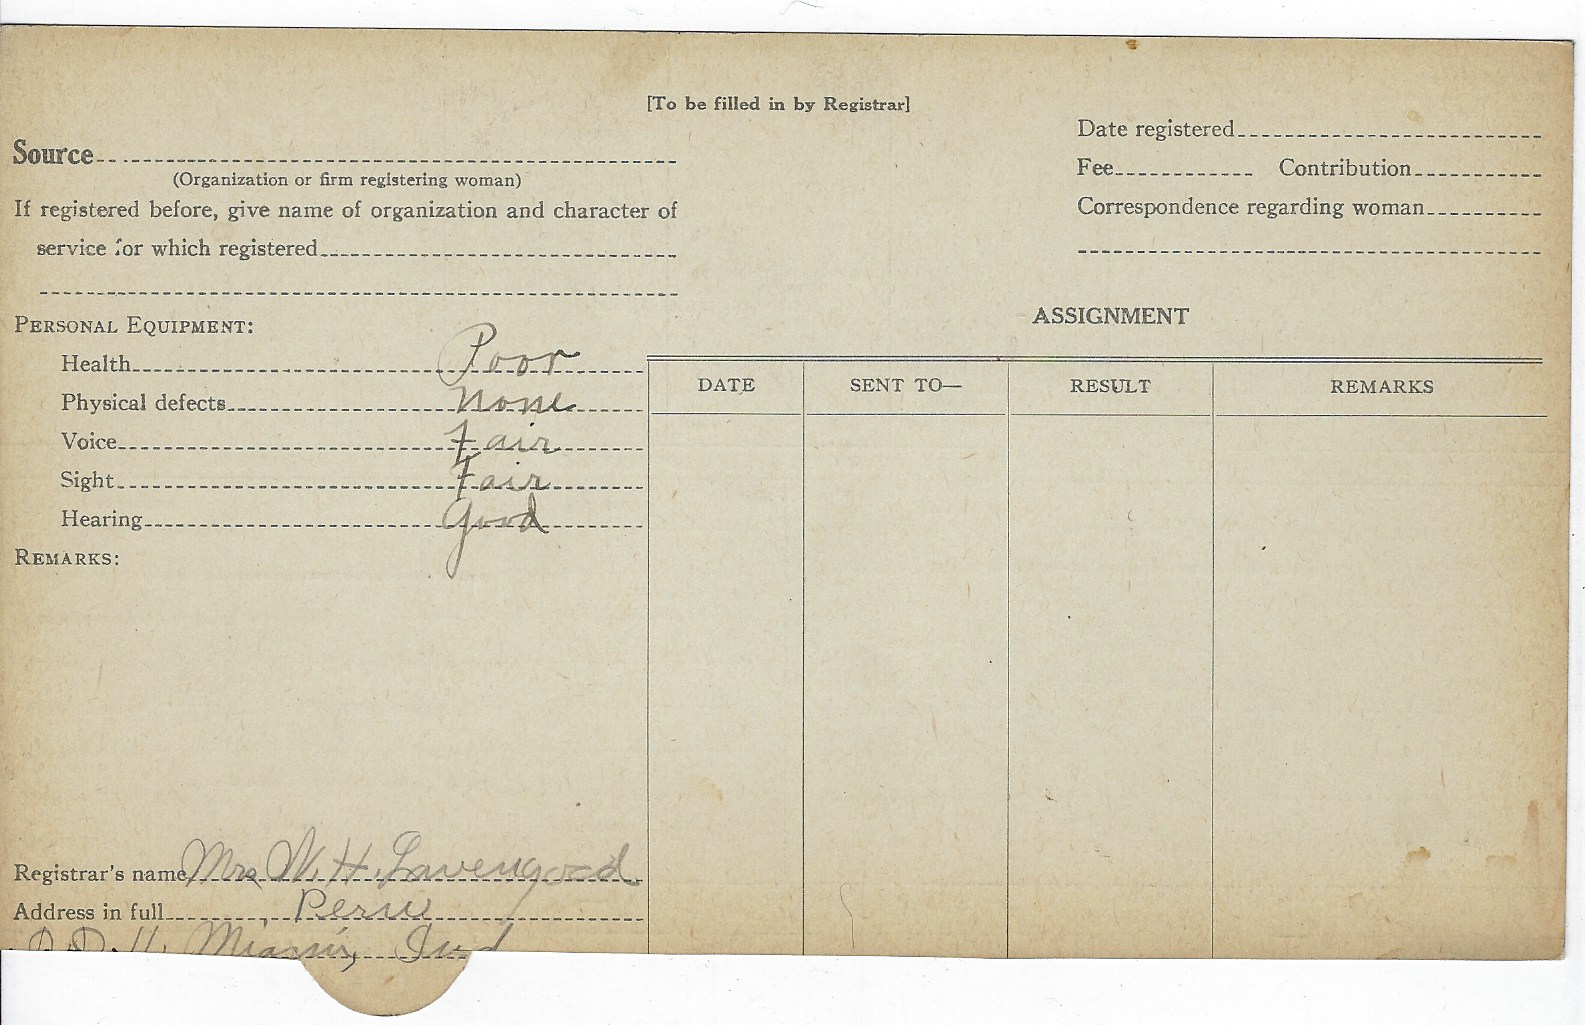 [To be filled in by Registrar]
Date registered
Source
Fee Contribution
(Organization or firm registering woman)
If registered before, give name of organization and character of
Correspondence regarding woman
service for which registered
PERSONAL EQUIPMENT:
ASSIGNMENT
Health Poor
Physical defects None
Voice Fair
Sight Fair
Hearing Good
REMARKS:
DATE SENT TO— RESULT REMARKS
Registrar's name Mrs W. H. Lavengood
Address in full Peru
Miami, Ind